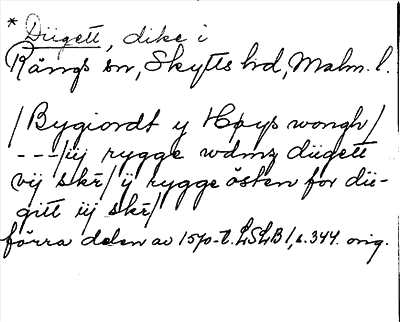 * Diigett, dike i
Rängs sn, Skytts hrd, Malm. l.
/Bygiordt y Høys wongh/
---/iij rygge wdmz diigett
vij skr̄/ ij rygge östen for dii-
gitt iij skr̄/
förra delen av 1570-t. LSLB 1, s. 344. orig.